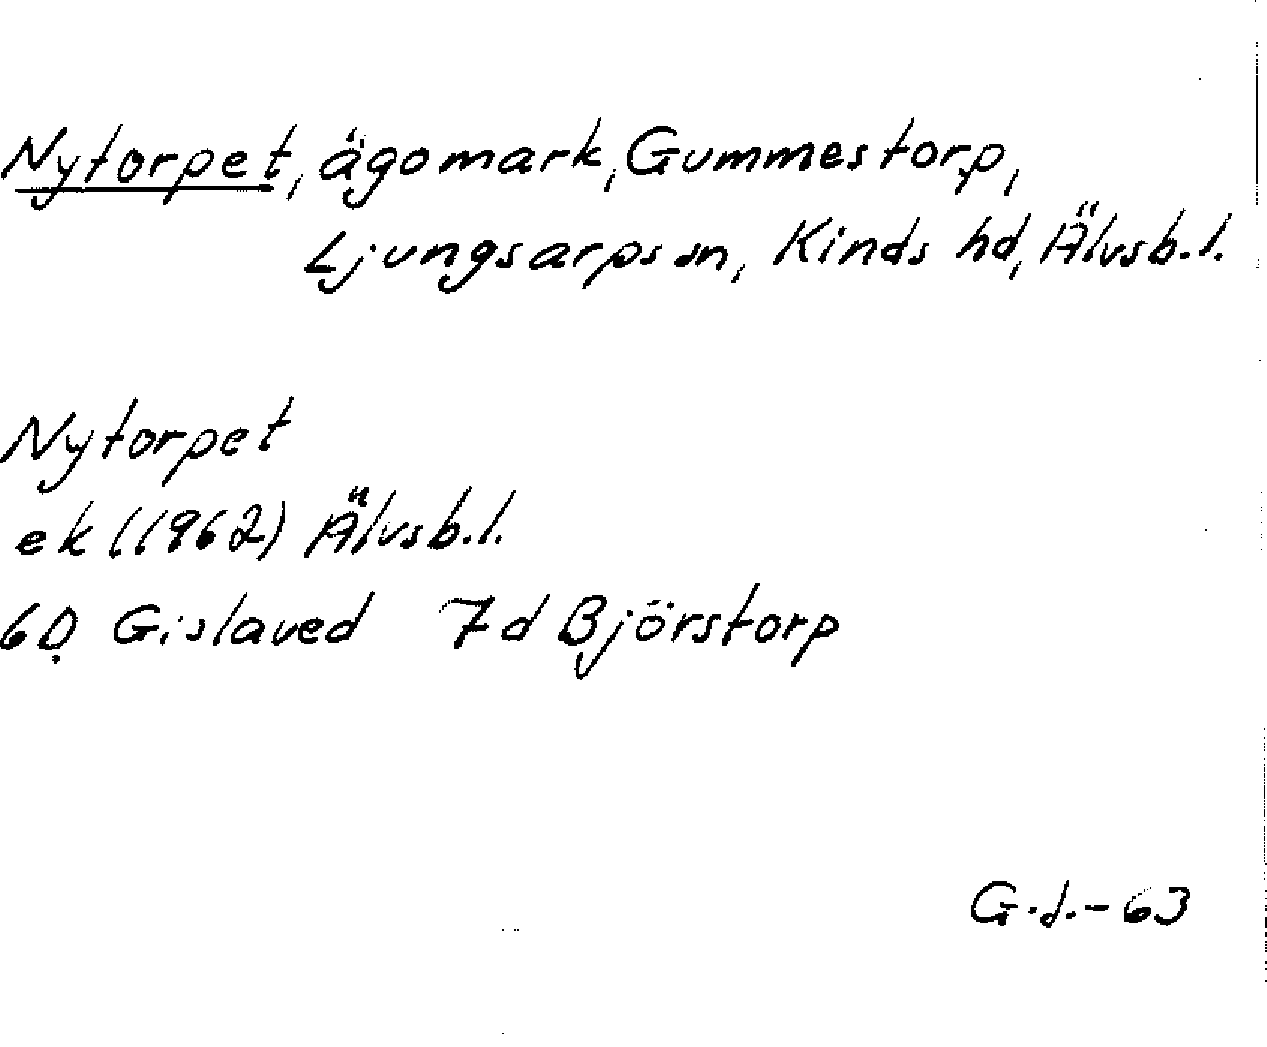 Nytorpet, ägomark, Gummestorp,
Ljungsarps sn, Kinds hd, Älvsb.l.
Nytorpet
ek (1962) Älvsb.l.
6D Gislaved 7d Björstorp
G.d.-63